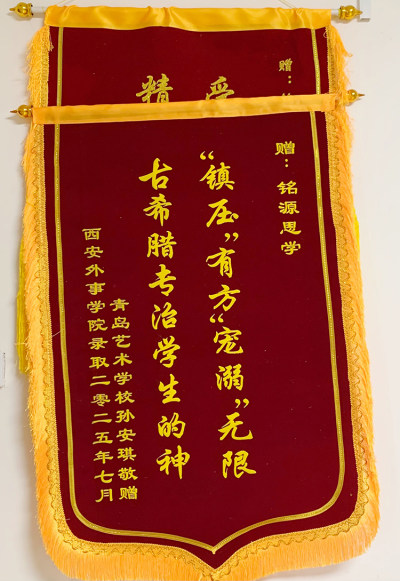 赠：
受
精
赠：铭源恩学
“镇压”有方“宠溺”无限
古希腊专治学生的神
青岛艺术学校孙安琪敬赠
西安外事学院录取二零二五年七月